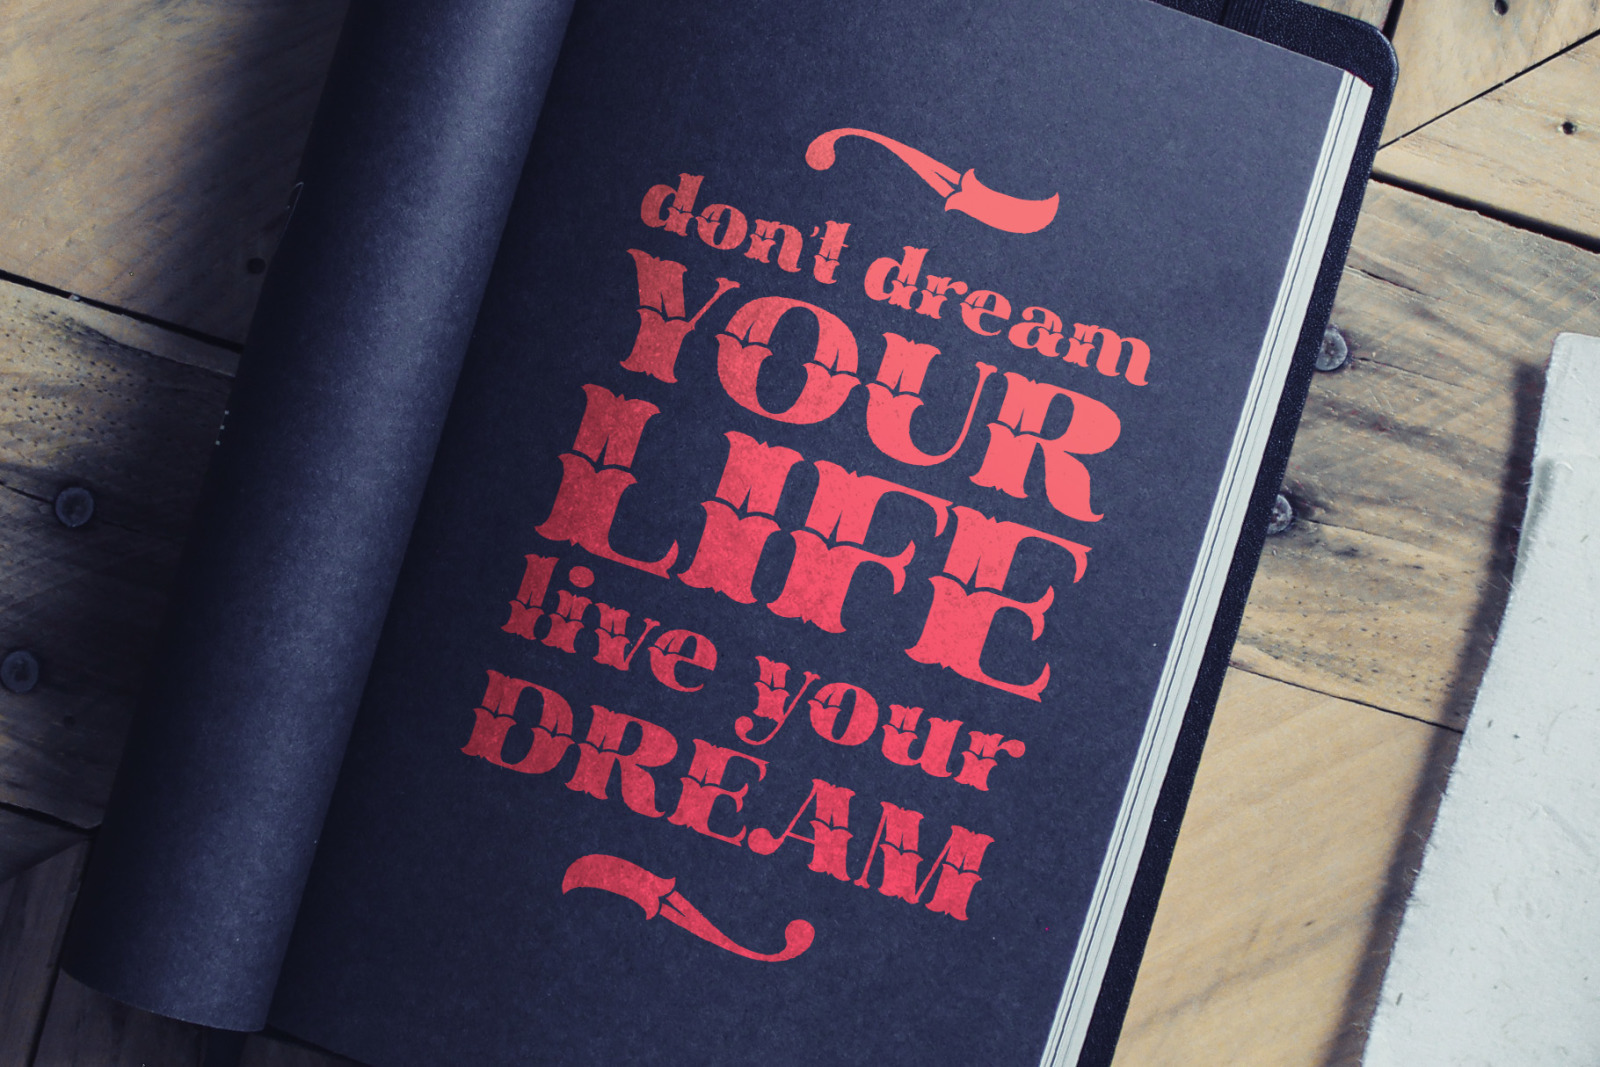 don't dream
YOUR
LIFE
live your
DREAM